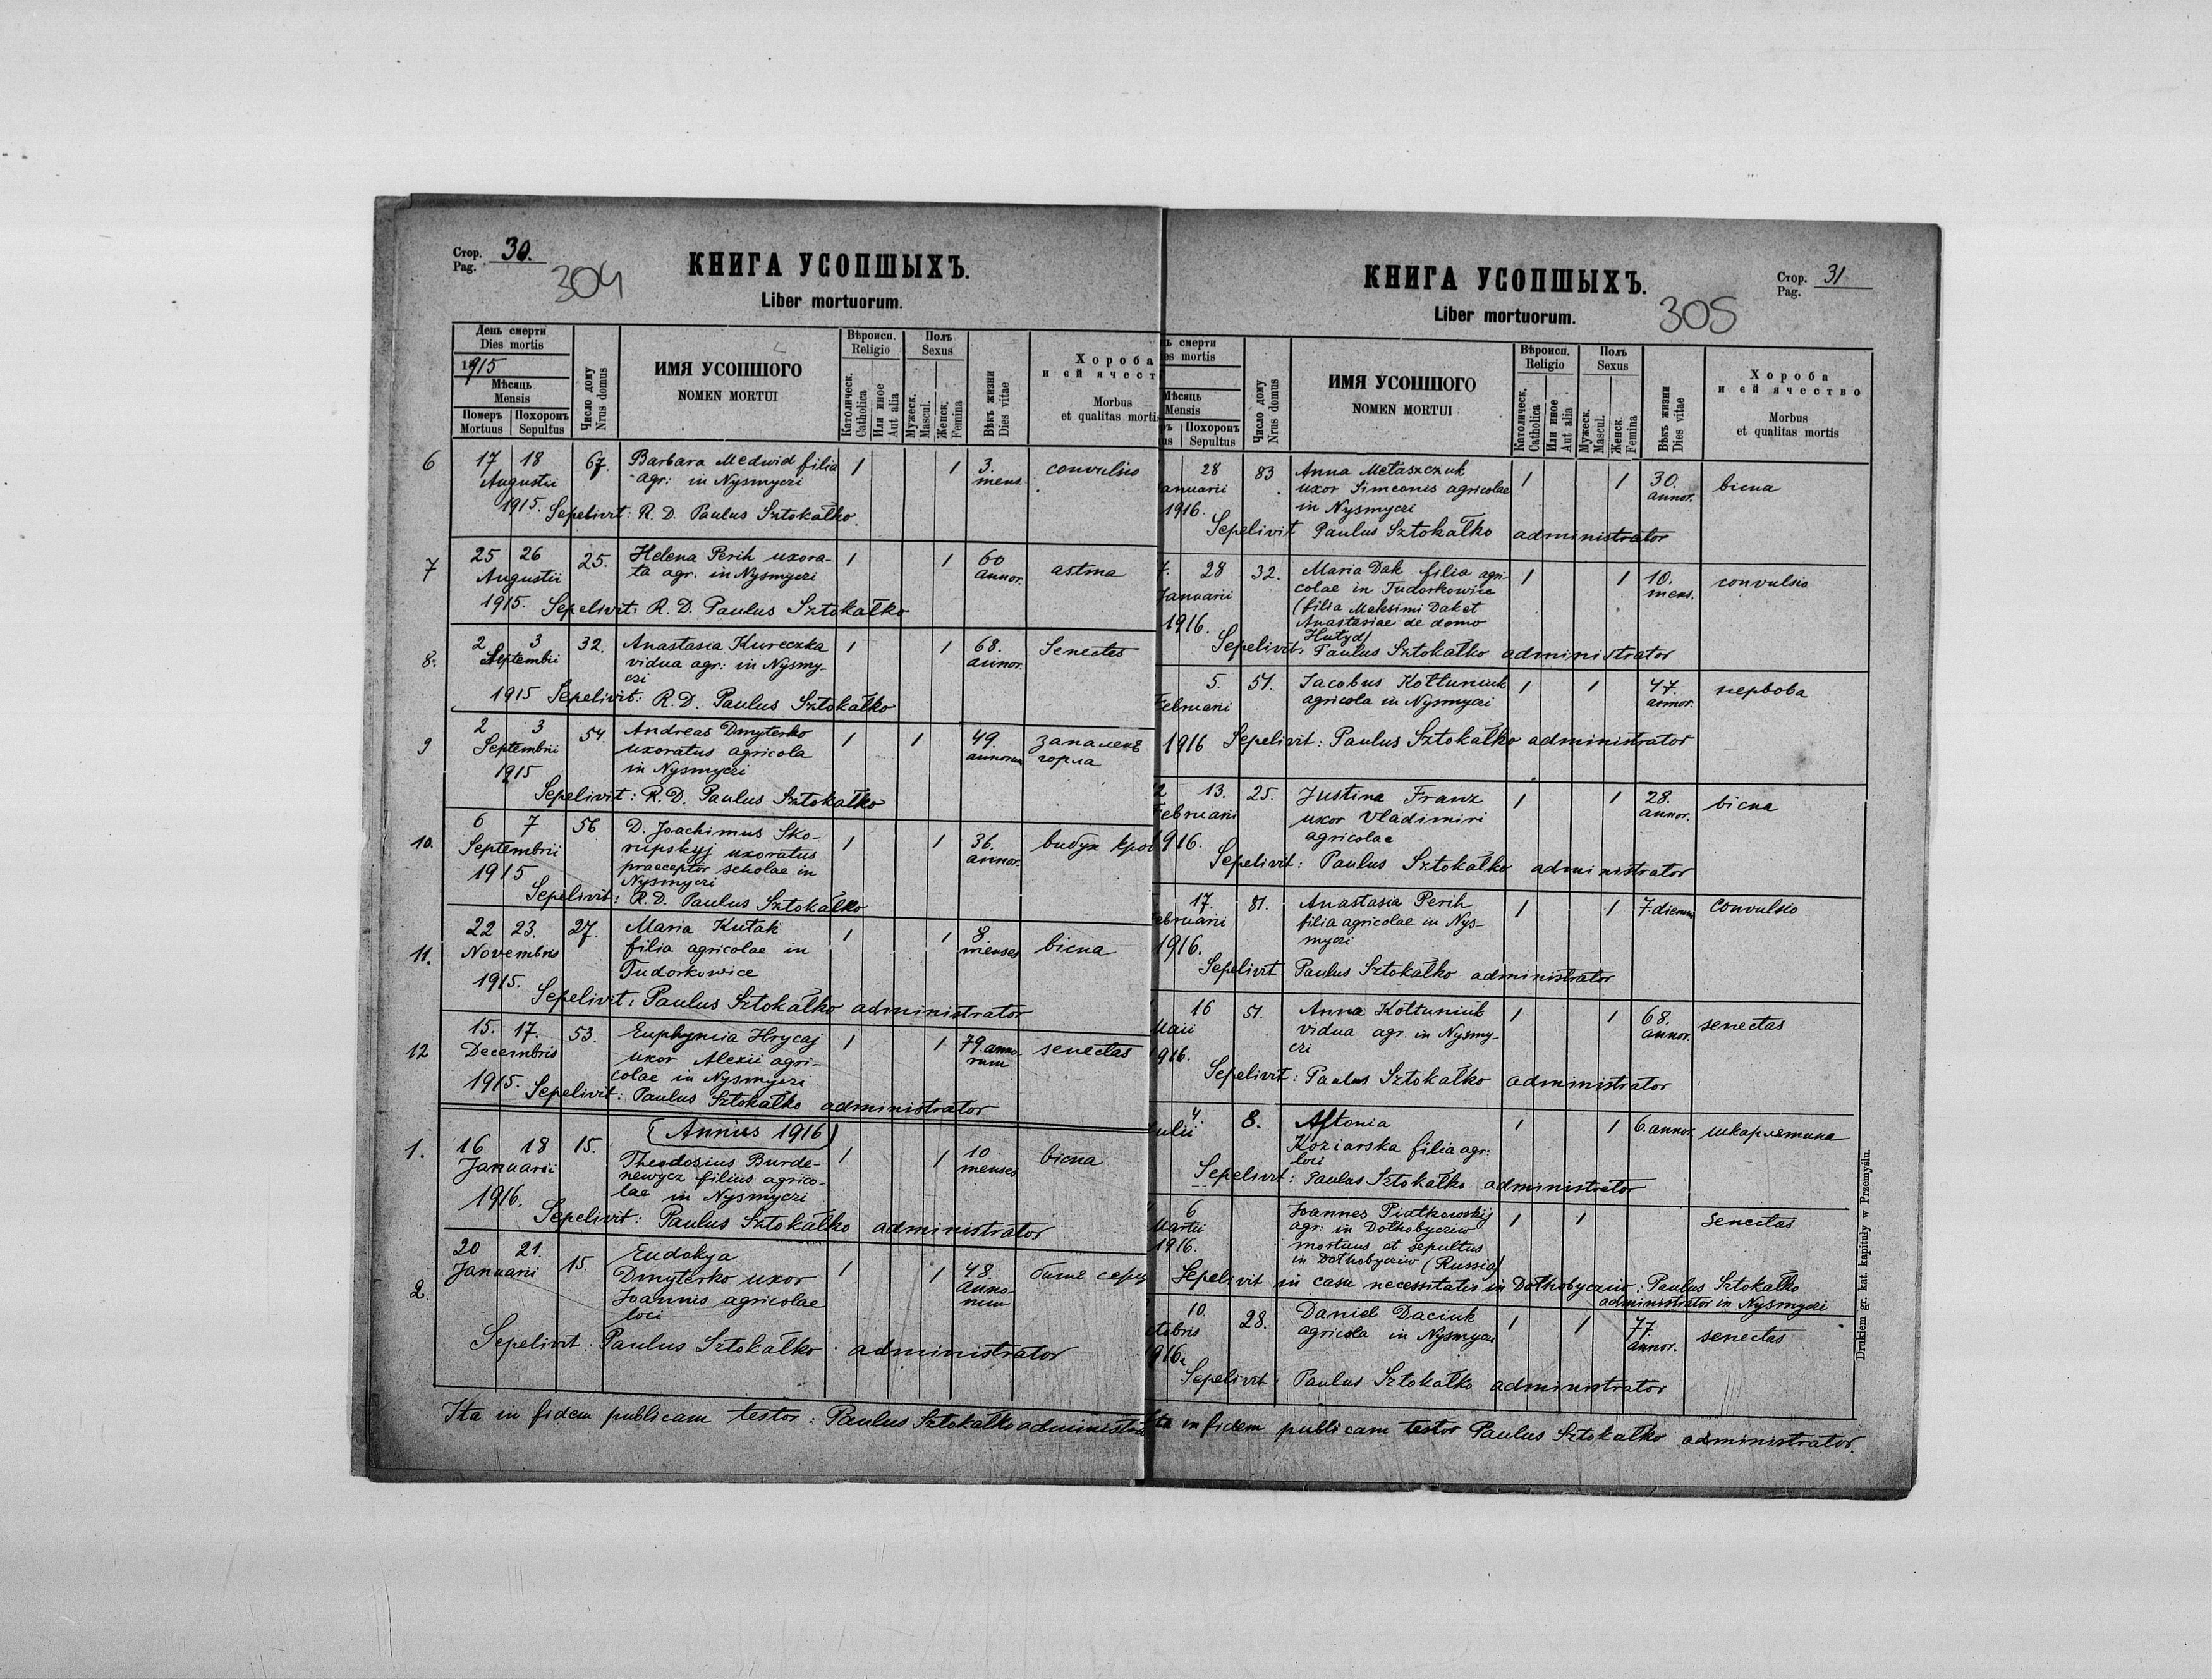 Стор. 30.
Pag.
304
КНИГА УСОПШЫХЪ.
Liber mortuorum.
День смерти
Dies mortis
1915
Мѣсяць
Mensis
Померъ Похоронъ
Mortuus Sepultus
Число дому
Nrus domus
ИМЯ УСОПШОГО
NOMEN MORTUI
Вѣроисп.
Religio
Католическ.
Catholica
Или иное
Aut alia
Полъ
Sexus
Мужеск.
Mascul.
Женск.
Femina
Вѣкъ жизни
Dies vitae
Хороба
и ей ячест
Morbus
et qualitas mortis
6 17 18 67. Barbara Medwid filia 1 1 3. convulsio
Augustii agr: in Nysmyczi mens.
1915. Sepelivit: R. D. Paulus Sztokałko.
7 25 26 25. Helena Perih uxora- 1 1 60 astma
Augustii ta agr. in Nysmyczi annor.
1915. Sepelivit: R. D. Paulus Sztokałko
8. 2 3 32. Anastasia Kureczka 1 1 68. Senectus
Septembri vidua agr: in Nysmy- annor.
czi
1915 Sepelivit: R. D. Paulus Sztokałko
9 2 3 54. Andreas Dmyterko 1 1 49. запаленє
Septembri uxoratus agricola annorum горла
1915 in Nysmyczi
Sepelivit: R. D. Paulus Sztokałko
10. 6 7 56 D. Joachimus Sko- 1 1 36. вибух кров
Septembrii rupskyj uxoratus annor.
1915 praeceptor scholae in
Nysmyczi
Sepelivit: R. D. Paulus Sztokałko
11. 22 23. 27. Maria Kutak 1 1 8 вісна
Novembris filia agricolae in menses
1915. Tudorkowice
Sepelivit: Paulus Sztokałko administrator
12 15. 17. 53. Euphymia Hrycaj 1 1 79 anno- senectas
Decembris uxor Alexii agri- rum
colae in Nysmyczi
1915. Sepelivit: Paulus Sztokałko administrator
(Annus 1916)
1. 16 18 15. Theodosius Burde- 1 1 10 вісна
Januarii newycz filius agrico- menses
1916. lae in Nysmyczi
Sepelivit: Paulus Sztokałko administrator
2. 20 21. 15. Eudokya 1 1 48. битє серц
Januarii Dmyterko uxor anno-
Joannis agricolae rum
loci
Sepelivit: Paulus Sztokałko administrator
Ita in fidem publicam testor: Paulus Sztokałko administra
КНИГА УСОПШЫХЪ.
Liber mortuorum.
Стор. 31
Pag.
305
ь смерти
es mortis
Мѣсяць
Mensis
ъ Похоронъ
us Sepultus
Число дому
Nrus domus
ИМЯ УСОПШОГО
NOMEN MORTUI
Вѣроисп.
Religio
Католическ.
Catholica
Или иное
Aut alia
Полъ
Sexus
Мужеск.
Mascul.
Женск.
Femina
Вѣкъ жизни
Dies vitae
Хороба
и ей ячество
Morbus
et qualitas mortis
28 83 Anna Metaszczuk 1 1 30. вісна
anuarii uxor Simeonis agricolae annor.
1916. in Nysmyczi
Sepelivit Paulus Sztokałko administrator
7. 28 32. Maria Dak filia agri- 1 1 10. convulsio
Januarii colae in Tudorkowice mens.
(filia Maksimi Dak et
1916. Anastasiae de domo
Hutyd)
Sepelivit: Paulus Sztokałko administrator
5. 51. Jacobus Kołtuniuk 1 1 47. нервова
Februarii agricola in Nysmyczi annor.
1916 Sepelivit: Paulus Sztokałko administrator
2 13. 25. Justina Franz 1 1 28. вісна
Februarii uxor Vladimiri annor.
1916. agricolae
Sepelivit: Paulus Sztokałko administrator
17. 81. Anastasia Perih 1 1 7. dierum convulsio
ebruarii filia agricolae in Nys-
1916. myczi
Sepelivit Paulus Sztokałko administrator
16 51. Anna Kołtuniuk 1 1 68. senectas
Maii vidua agr. in Nysmy- annor.
1916. czi
Sepelivit: Paulus Sztokałko administrator
4 8. Antonia 1 1 6. annor. шкарлятина
ulii Koziarska filia agr:
loci
Sepelivit: Paulus Sztokałko administrator
6 Joannes Piatkowskij 1 1 senectas
Martii agr: in Dołhobycziw
1916. mortuus et sepultus
in Dołhobyczów (Russia)
Sepelivit in casu necessitatis in Dołhobycziw: Paulus Sztokałko
administrator in Nysmyczi
10. 28. Daniel Daciuk 1 1 77. senectas
ctobris agricola in Nysmyczi annor.
1916.
Sepelivit: Paulus Sztokałko administrator
Ita in fidem publicam testor Paulus Sztokałko administrator.
Drukiem gr. kat. kapituły w Przemyślu.